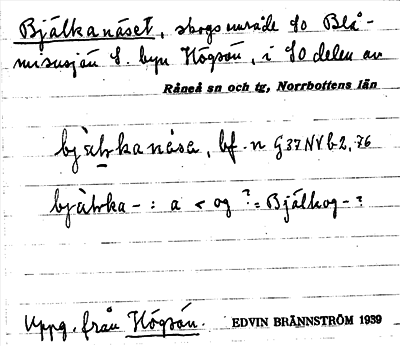 Bjälkanäset, skogsområde SO Blå-
misusjön S. byn Högsön, i SO delen av
Råneå sn och tg, Norrbottens län
bjàłkanåsa, bf. n G 37 NV b 2, 76
bjàłka- : a < og ? = Bjälkog- ?
Uppg. från Högsön. EDVIN BRÄNNSTRÖM 1939